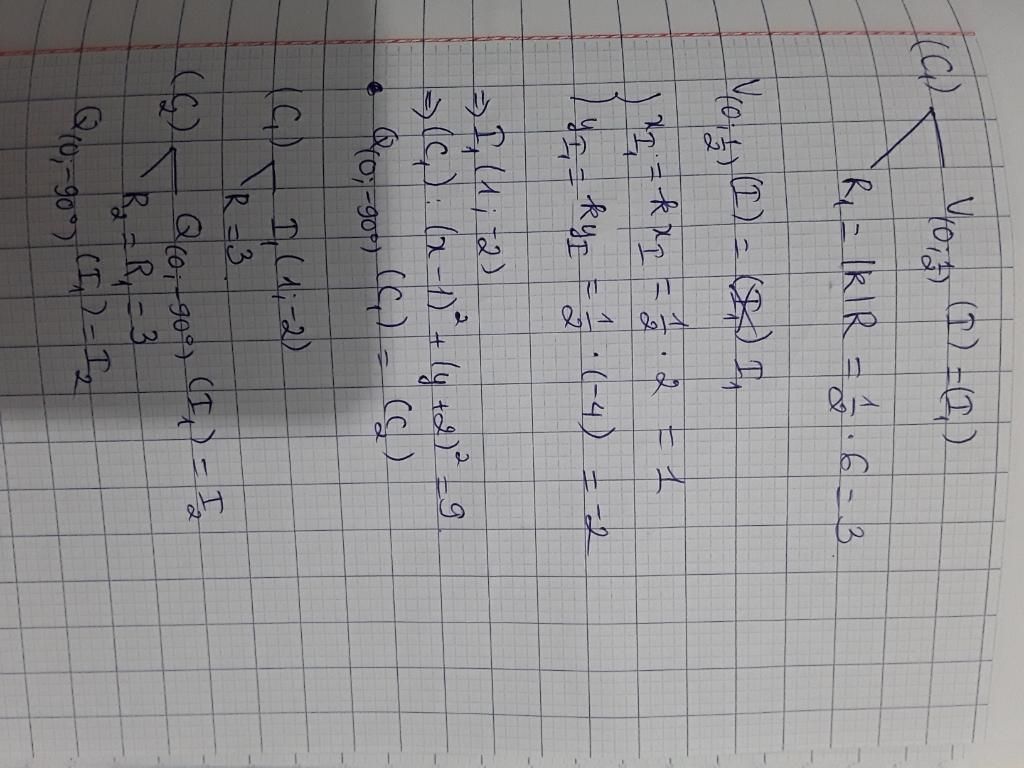 (C₁) V(O; 1/2) (I) = (I₁)
R₁ = |k|R = 1/2 · 6 = 3
V(O; 1/2) (I) = I₁
{ x_I₁ = k x_I = 1/2 · 2 = 1
y_I₁ = k y_I = 1/2 · (-4) = -2
⇒ I₁ (1; -2)
⇒ (C₁) : (x - 1)² + (y + 2)² = 9
• Q(O; -90°) (C₁) = (C₂)
(C₁) I₁ (1; -2)
R = 3
(C₂) Q(O; -90°) (I₁) = I₂
R₂ = R₁ = 3
Q(O; -90°) (I₁) = I₂